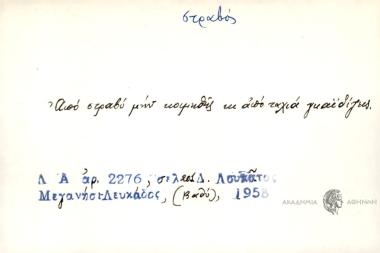 στραβός
Ἀπό στραβό μήν κοιμηθῆς κι ἀπό ταχιά
Λ Α ἀρ. 2276, σελ. Δ. Λουκᾶτος
Μεγανήσι Λευκάδος, (Βαθύ), 1958
ΑΚΑΔΗΜΙΑ ΑΘΗΝΩΝ